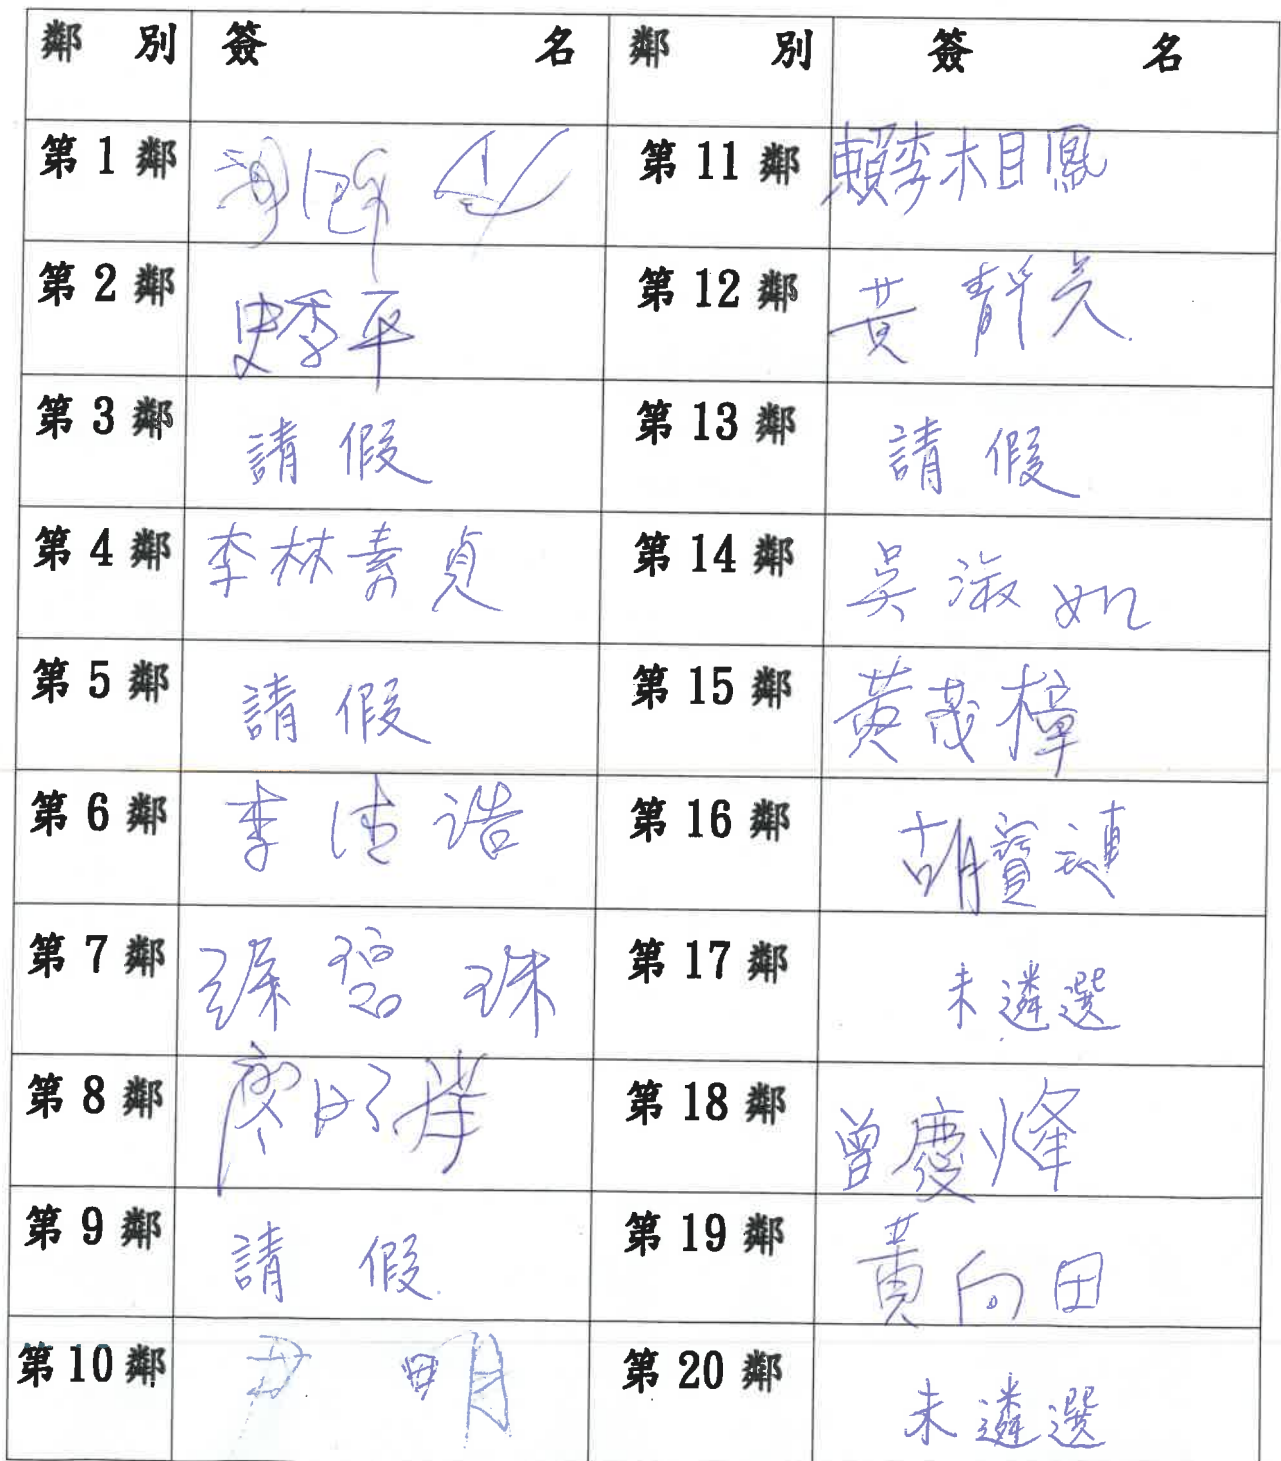 鄰 別 簽 名 鄰 別 簽 名
第 1 鄰 第 11 鄰 賴李相鳳
第 2 鄰 史季平 第 12 鄰 黃靜美
第 3 鄰 請假 第 13 鄰 請假
第 4 鄰 李林素貞 第 14 鄰 吳淑如
第 5 鄰 請假 第 15 鄰 黃茂樟
第 6 鄰 李 浩 第 16 鄰 胡寶璉
第 7 鄰 張碧珠 第 17 鄰 未遴選
第 8 鄰 廖 第 18 鄰 曾慶烽
第 9 鄰 請假 第 19 鄰 黃向田
第 10 鄰 尹明 第 20 鄰 未遴選